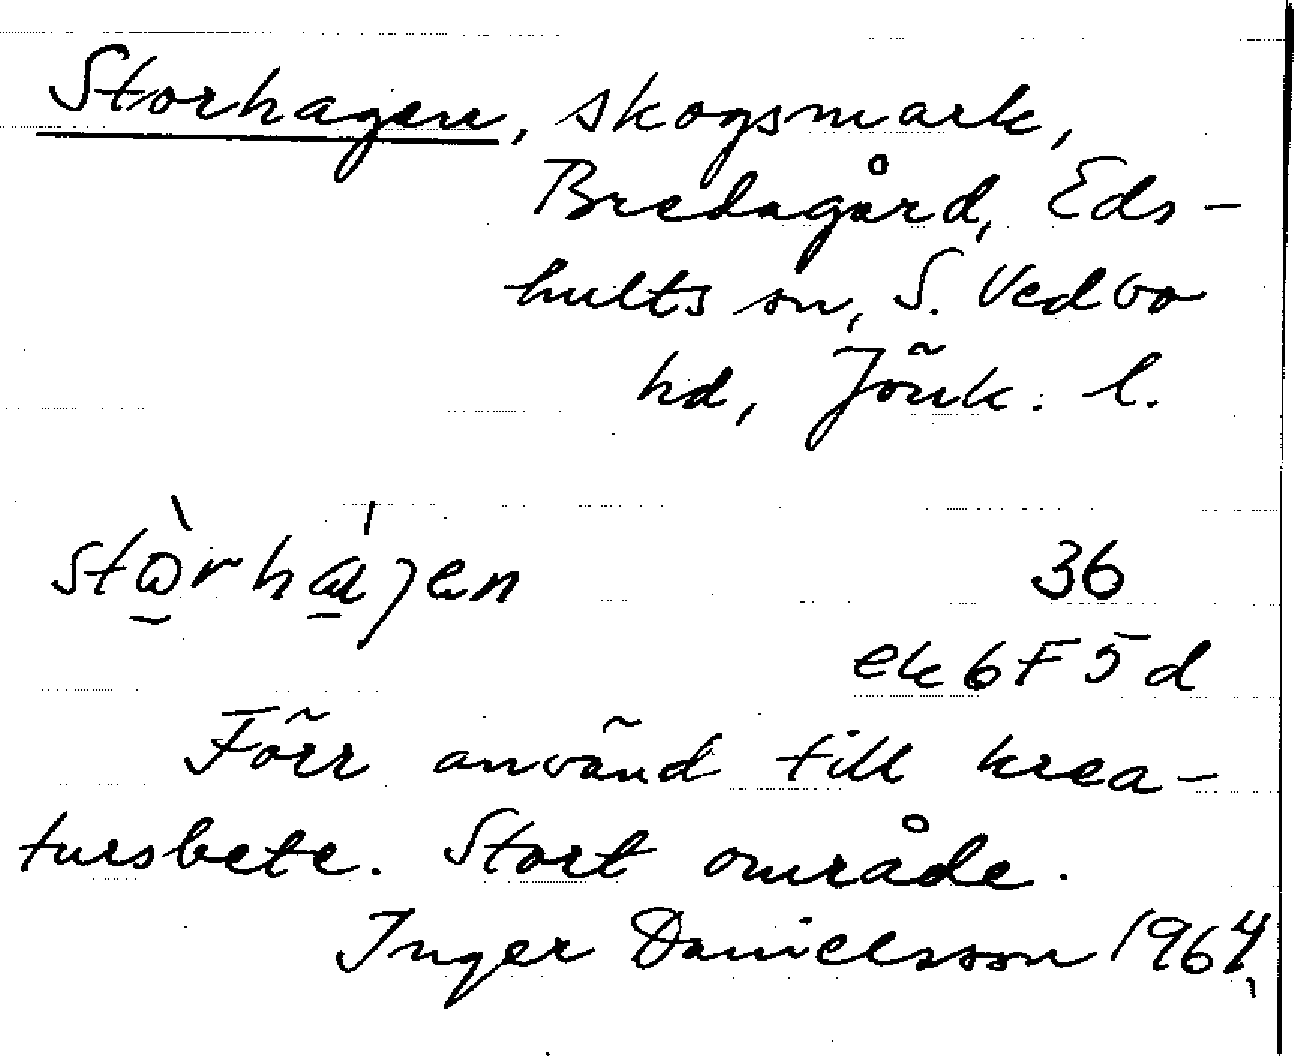 Storhagen, skogsmark,
Bredagård, Eds-
hults sn, S. Vedbo
hd, Jönk. l.
36
ek 6F5d
Förr använd till krea-
tursbete. Stort område.
Inger Danielsson 1964